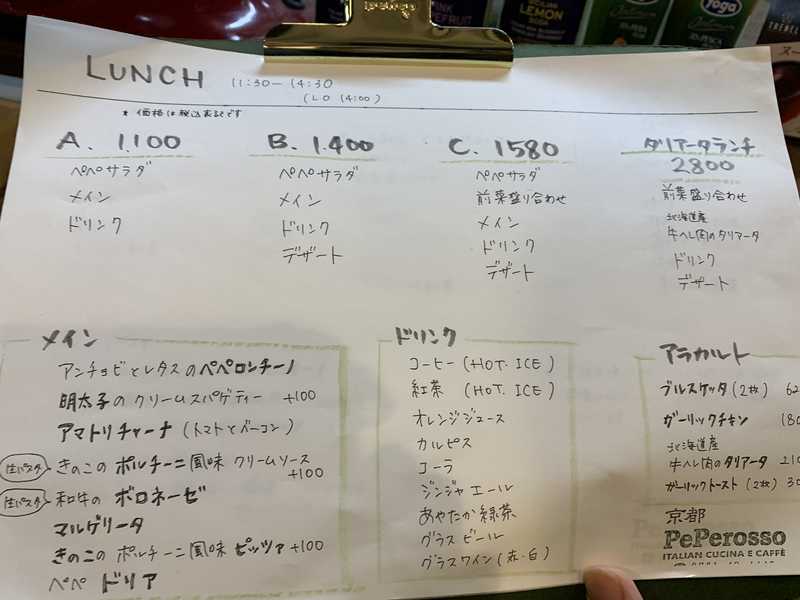 LUNCH 11:30－14:30
(LO 14:00)
* 価格は税込表記です
A. 1.100
ペペサラダ
メイン
ドリンク
B. 1.400
ペペサラダ
メイン
ドリンク
デザート
C. 1580
ペペサラダ
前菜盛り合わせ
メイン
ドリンク
デザート
タリアータランチ
2800
前菜盛り合わせ
北海道産
牛ヘレ肉のタリアータ
ドリンク
デザート
メイン
アンチョビとレタスのペペロンチーノ
明太子のクリームスパゲティー +100
アマトリチャーナ(トマトとベーコン)
生パスタ きのこのポルチーニ風味クリームソース
+100
生パスタ 和牛のボロネーゼ
マルゲリータ
きのこのポルチーニ風味ピッツァ +100
ペペドリア
ドリンク
コーヒー(HOT. ICE)
紅茶 (HOT. ICE)
オレンジジュース
カルピス
コーラ
ジンジャエール
あやたか緑茶
グラスビール
グラスワイン(赤・白)
アラカルト
ブルスケッタ(2枚)
ガーリックチキン
北海道産
牛ヘレ肉のタリアータ
ガーリックトースト(2枚)
京都
PePerosso
ITALIAN CUCINA E CAFFÈ
SICILIAN
LEMON
SODA
Yoga